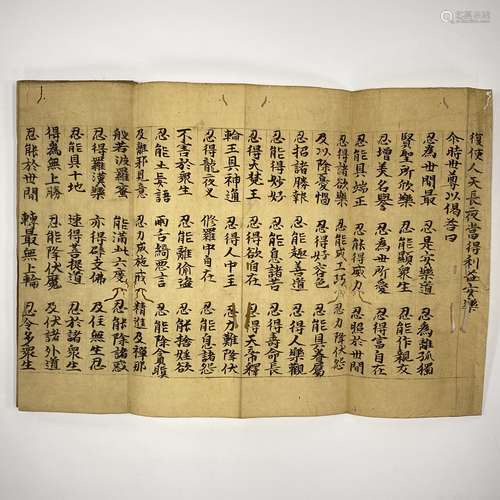 復使人天長夜當得利益安樂
尒時世尊以偈答曰
忍為世間最 忍是安樂道 忍為離孤獨
賢聖所欣樂 忍能顯衆生 忍能作親友
忍增美名譽 忍為世所愛 忍得富自在
忍能具端正 忍能得威力 忍照於世間
忍得諸欲樂 忍能成工巧 忍力降伏怨
及以除憂惱 忍得好容色 忍能具眷屬
忍招諸勝報 忍能趣善道 忍得人樂觀
忍能得妙好 忍能息諸苦 忍得壽命長
忍得大梵王 忍得欲自在 忍得天帝釋
輪王具神通 忍得人中王 忍力難降伏
忍得龍夜叉 修羅中自在 忍能息諸怨
不害於衆生 忍能離偷盜 忍能捨婬欲
忍能止妄語 兩舌綺惡言 忍能除貪瞋
及離邪見意 忍力成施戒 精進及禪那
般若波羅蜜 能滿此六度 忍能除諸惑
忍得羅漢樂 亦得辟支佛 及住無生忍
忍能具十地 速得菩提道 忍於諸衆生
得為無上勝 忍能降伏魔 及伏諸外道
忍能於世間 轉最無上輪 忍令多衆生